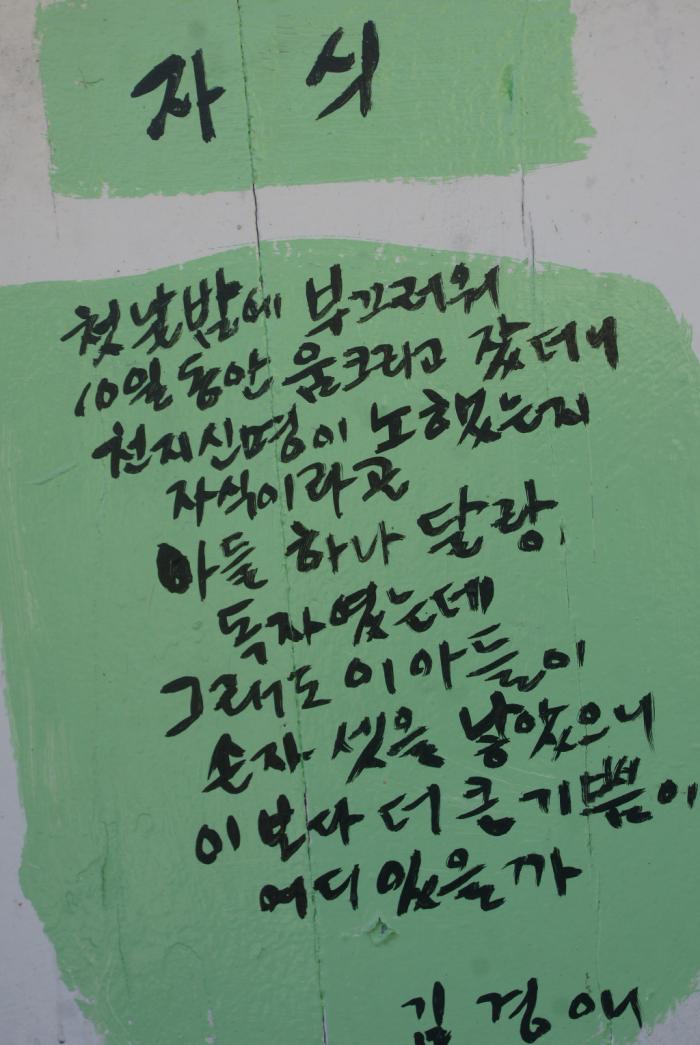 자식
첫날밤에 부끄러워
10일 동안 움크라고 잤더니
천지신명이 노했는지
자식이라곤
아들 하나 달랑.
독자였는데
그래도 이 아들이
손자 셋을 낳았으니
이보다 더 큰 기쁨이
어디 있을까
김경애